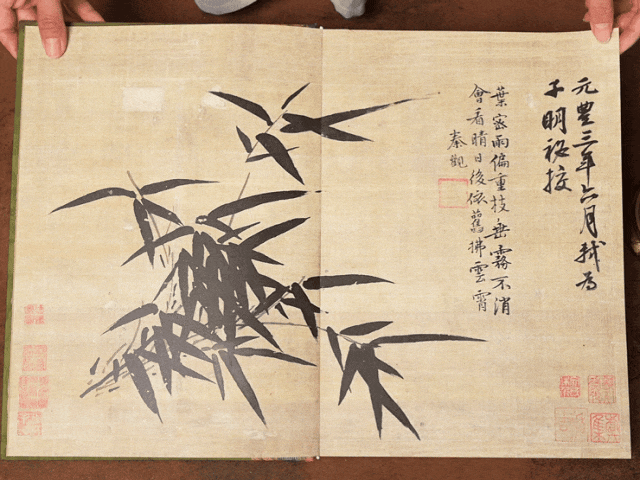 元豐三年六月軾為
子明秘校
葉密雨偏重枝垂霧不消
會看晴日後依舊拂雲霄
秦觀